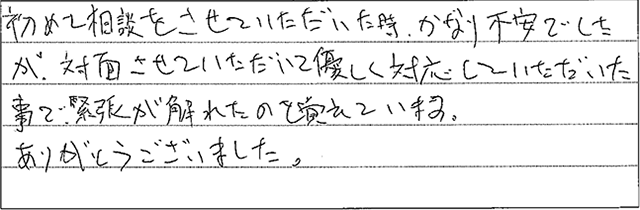 初めて相談をさせていただいた時、かなり不安でした
が、対面させていただいて優しく対応していただいた
事で、緊張が解れたのを覚えています。
ありがとうございました。